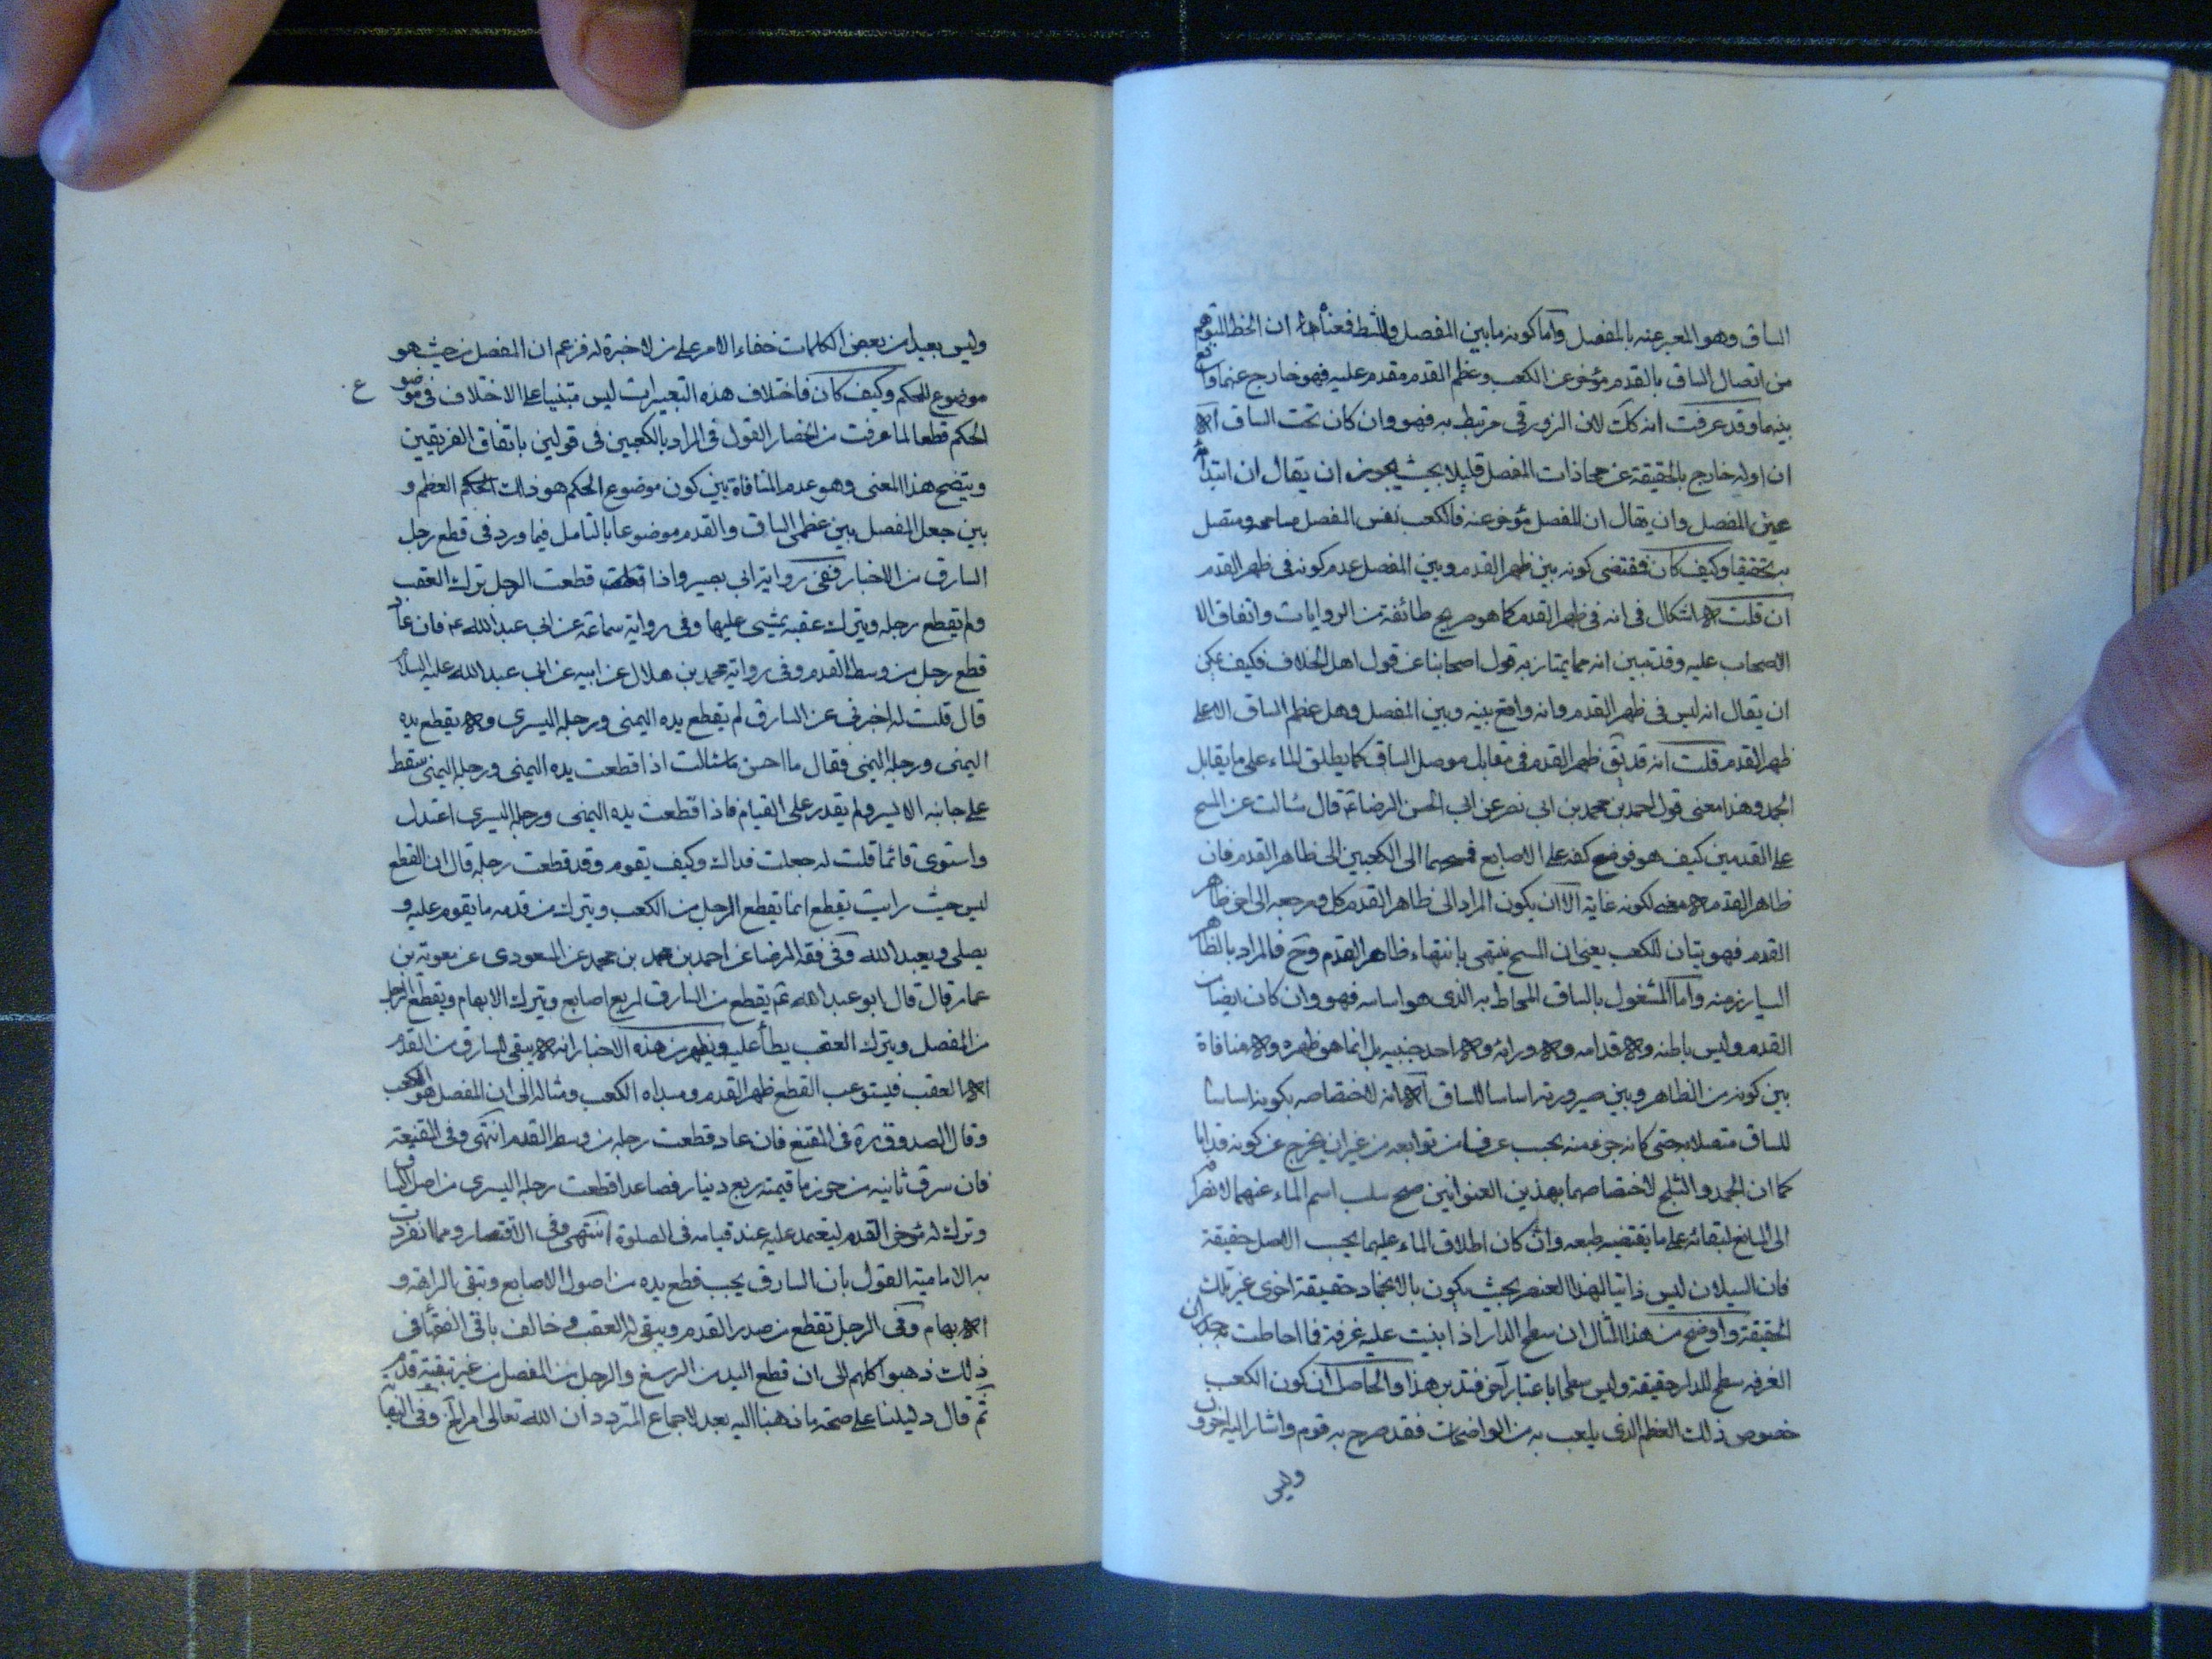 الساق وهو المعبر عنه بالمفصل وآما كونه ما بين المفصل والمشط فمعناه ان الخط المتوهم
من اتصال الساق بالقدم مؤخر عن الكعب وعظم القدم مقدم عليه فهو خارج عنهما واقع
بينهما وقد عرفت انه كك لان الزورقي مرتبط به فهو وان كان تحت الساق الا
ان اوله خارج بالحقيقة عن محاذات المفصل قليلا بحيث يجوز ان يقال ان ابتدائه
عين المفصل وان يقال ان المفصل مؤخر عنه فالكعب نفس المفصل مسامحه ومتصل
به تحقيقا وكيف كان فمقتضى كونه بين ظهر القدم وبين المفصل عدم كونه في ظهر القدم
ان قلت لا اشكال في انه في ظهر القدم كما هو صريح طائفة من الروايات واتفاق الا
الاصحاب عليه وقد تبين انه مما يمتاز به قول اصحابنا عن قول اهل الخلاف فكيف يمكن
ان يقال انه ليس في ظهر القدم وانه واقع بينه وبين المفصل وهل عظم الساق الا على
ظهر القدم قلت انه قد يق ظهر القدم في مقابل موصل الساق كما يطلق الماء على ما يقابل
الجمد وهذا معنى قول احمد بن محمد بن ابي نصر عن ابي الحسن الرضا ع قال سئالت عن المسح
على القدمين كيف هو فوضع كفه على الاصابع فمسحهما الى الكعبين الى ظاهر القدم فان
ظاهر القدم لا معنى لكونه غاية الا ان يكون المراد الى ظاهر القدم كل ومرجعه الى اخر ظاهر
القدم فهو بيان للكعب يعني ان المسح ينتهى بانتهاء ظاهر القدم وح فالمراد بالظاهر
البارز منه واما المشغول بالساق المحاط به الذى هو اساسه فهو وان كان ايضا من
القدم وليس باطنه ولا قدامه ولا ورائه ولا احد جنبيه بل انما هو ظهره ولا منافاة
بين كونه من الظاهر وبين صيرورته اساسا للساق الا انه لاختصاصه بكونه اساسا
للساق متصلا به حتى كانه جزء منه يحسب عرفا من توابعه من غير ان يخرج عن كونه قدما
كما ان الجمد والثلج لاختصاصهما بهذين العنوانين صح سلب اسم الماء عنهما لانصرافه
الى المايع لبقائه على ما يقتضيه طبعه وان كان اطلاق الماء عليهما بحسب الاصل حقيقة
فان السيلان ليس ذاتيا لهذا العنصر بحيث يكون بالانجماد حقيقة اخرى غير تلك
الحقيقة واوضح من هذا المثال ان سطح الدار اذا بنيت عليه غرفة فما احاطت به جدران
الغرفه سطح للدار حقيقة وليس سطحا باعتبار آخر فتدبر هذا والحاصل ان كون الكعب
خصوص ذلك العظم الذى يلعب به من الواضحات فقد صرح به قوم واشار اليه اخرون
وليس بعيد من بعض الكلمات خفاء الامر على من لا خبرة له فزعم ان المفصل من حيث هو
موضوع للحكم وكيف كان فاختلاف هذه التعبيرات ليس مبتنيا على الاختلاف في موضوع
الحكم قطعا لما عرفت من انحصار القول في المراد بالكعبين في قولين باتفاق الفريقين
ويتضح هذا المعنى وهو عدم المنافاة بين كون موضوع الحكم هو ذلك العظم و
بين جعل المفصل بين عظمى الساق والقدم موضوعا بالتامل فيما ورد في قطع رجل
السارق من الاخبار ففي رواية ابي بصير واذا قطعت الرجل ترك العقب
ولم يقطع رجله ويترك عقبه يمشي عليها وفي رواية سماعة عن ابي عبد الله ع فان عاد
قطع رجل من وسط القدم وفي رواية محمد بن هلال عن ابيه عن ابي عبد الله عليه السلام
قال قلت له اخبرني عن السارق لم يقطع يده اليمنى ورجله اليسرى ولا يقطع يده
اليمنى ورجله اليمنى فقال ما احسن ما سئالت اذا قطعت يده اليمنى ورجله اليمنى سقط
على جانبه الايسر ولم يقدر على القيام فاذا قطعت يده اليمنى ورجله اليسرى اعتدل
واستوى قائما قلت له جعلت فداك وكيف يقوم وقد قطعت رجله قال ان القطع
ليس حيث رايت يقطع انما يقطع الرجل من الكعب ويترك من قدمه ما يقوم عليه و
يصلى ويعبد الله وفي فقه الرضا عن احمد بن محمد بن محمد عن المسعودى عن معوية بن
عمار قال قال ابو عبد الله ع يقطع من السارق اربع اصابع ويترك الابهام ويقطع الرجل
من المفصل ويترك العقب يطأ عليه ويظهر من هذه الاخبار انه لا يبقى للسارق من القدم
الا العقب فيستوعب القطع ظهر القدم ومبداه الكعب ومثاله الى ان المفصل هو الكعب
وقال الصدوق ره في المقنع فان عاد قطعت رجله من وسط القدم انتهى وفي المقنعة
فان سرق ثانية من حرز ما قيمته ربع دينار فصاعدا قطعت رجله اليسرى من اصل الساق
وترك له مؤخر القدم ليعتمد عليه عند قيامه في الصلوة انتهى وفي الانتصار ومما انفردت
به الامامية القول بان السارق يجب قطع يده من اصول الاصابع وتبقى الراحة و
الابهام وفي الرجل تقطع من صدر القدم ويبقى له العقب وخالف باقي الفقهاء في
ذلك ذهبوا كلهم الى ان قطع اليد من الرسغ والرجل من المفصل من غير تبقية قدم
ثم قال دليلنا على صحة ما ذهبنا اليه بعد لاجماع المتردد ان الله تعالى امر الخ وفي النهاية